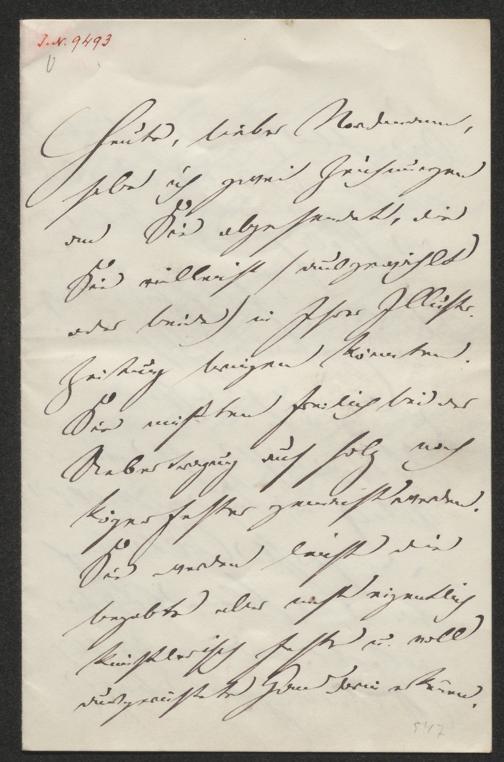 I.N. 9493
Heute, lieber Nordmann,
habe ich zwei Zeichnungen
an Sie abgesendet, die
Sie vielleicht (ausgewählt
oder beide) in Ihrer Illustr.
Zeitung bringen könnten.
Sie müßten freilich bei der
Uebertragung auf Holz noch
körperhafter gemacht werden.
Sie werden leicht die
begabte aber nicht eigentlich
künstlerisch feste u. voll
ausgerüstete Hand darin erkennen.
547